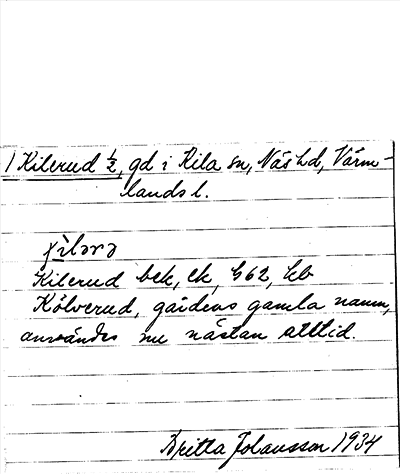 1 Kilerud ½, gd i Kila sn, Näs hd, Värm-
lands l.
Kilerud bek, ek, G62, kb
Kölverud, gårdens gamla namn,
användes nu nästan alltid.
Britta Johansson 1934